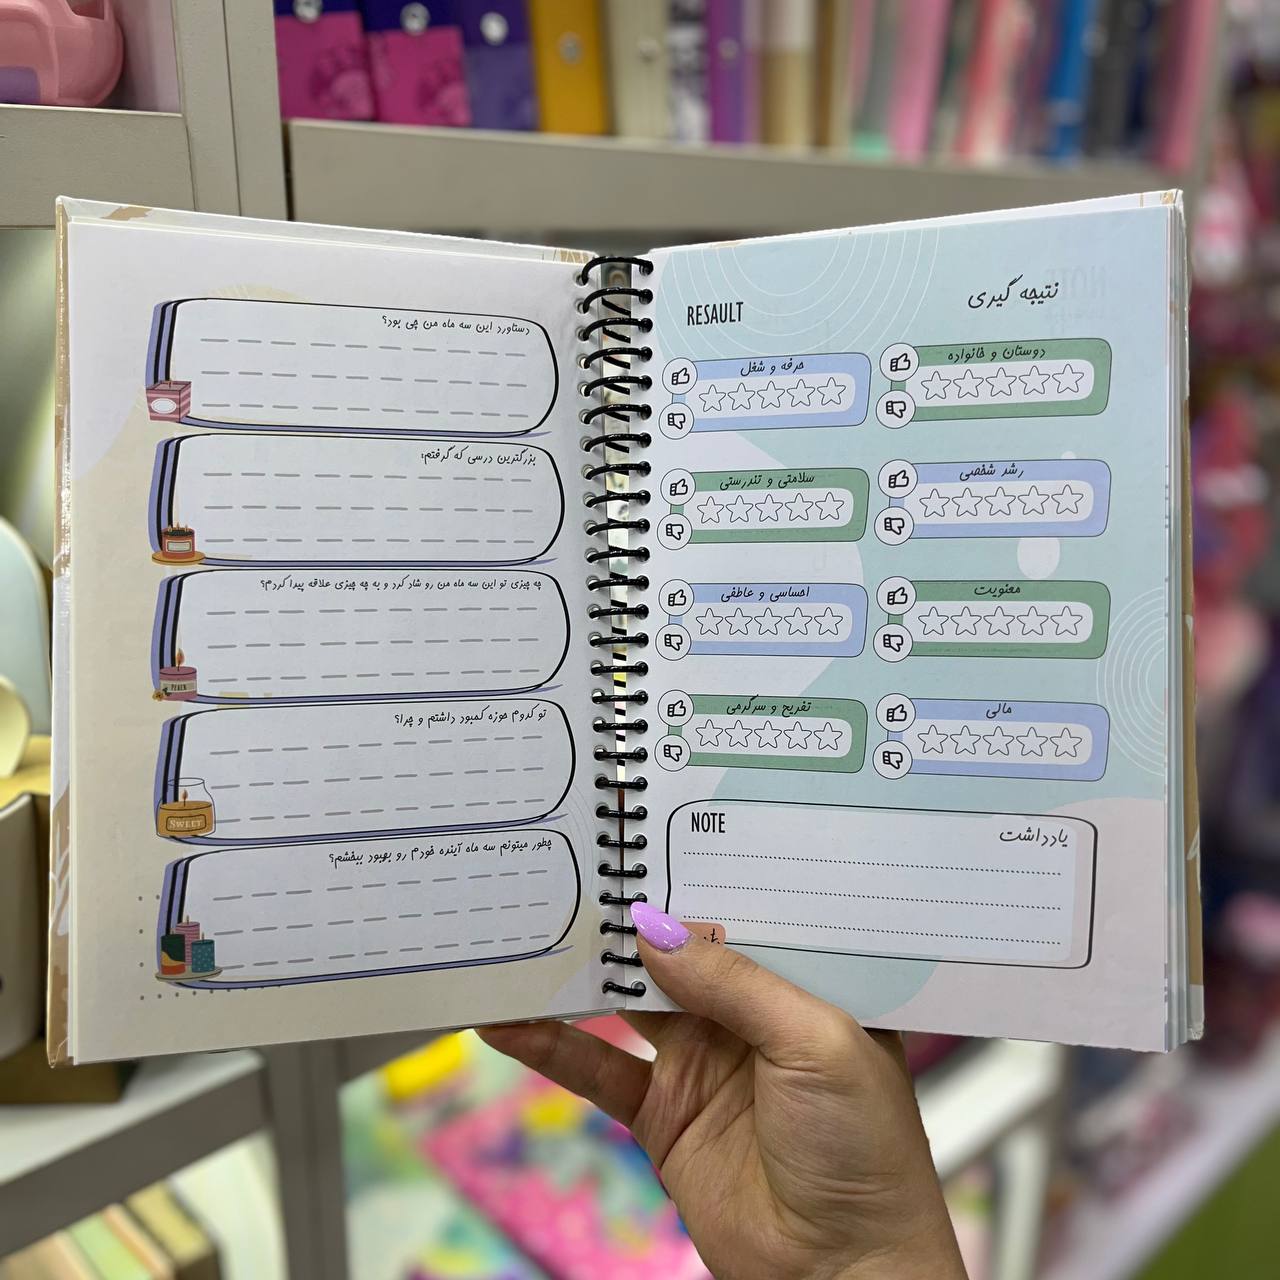 دستاورد این سه ماه من چی بود؟
بزرگترین درسی که گرفتم:
چه چیزی تو این سه ماه من رو شاد کرد و به چه چیزی علاقه پیدا کردم؟
PEACH
تو کدوم حوزه کمبود داشتم و چرا؟
SWEET
چطور میتونم سه ماه آینده خودم رو بهبود ببخشم؟
RESAULT
نتیجه گیری
دوستان و خانواده
حرفه و شغل
رشد شخصی
سلامتی و تندرستی
معنویت
احساسی و عاطفی
مالی
تفریح و سرگرمی
NOTE
یادداشت